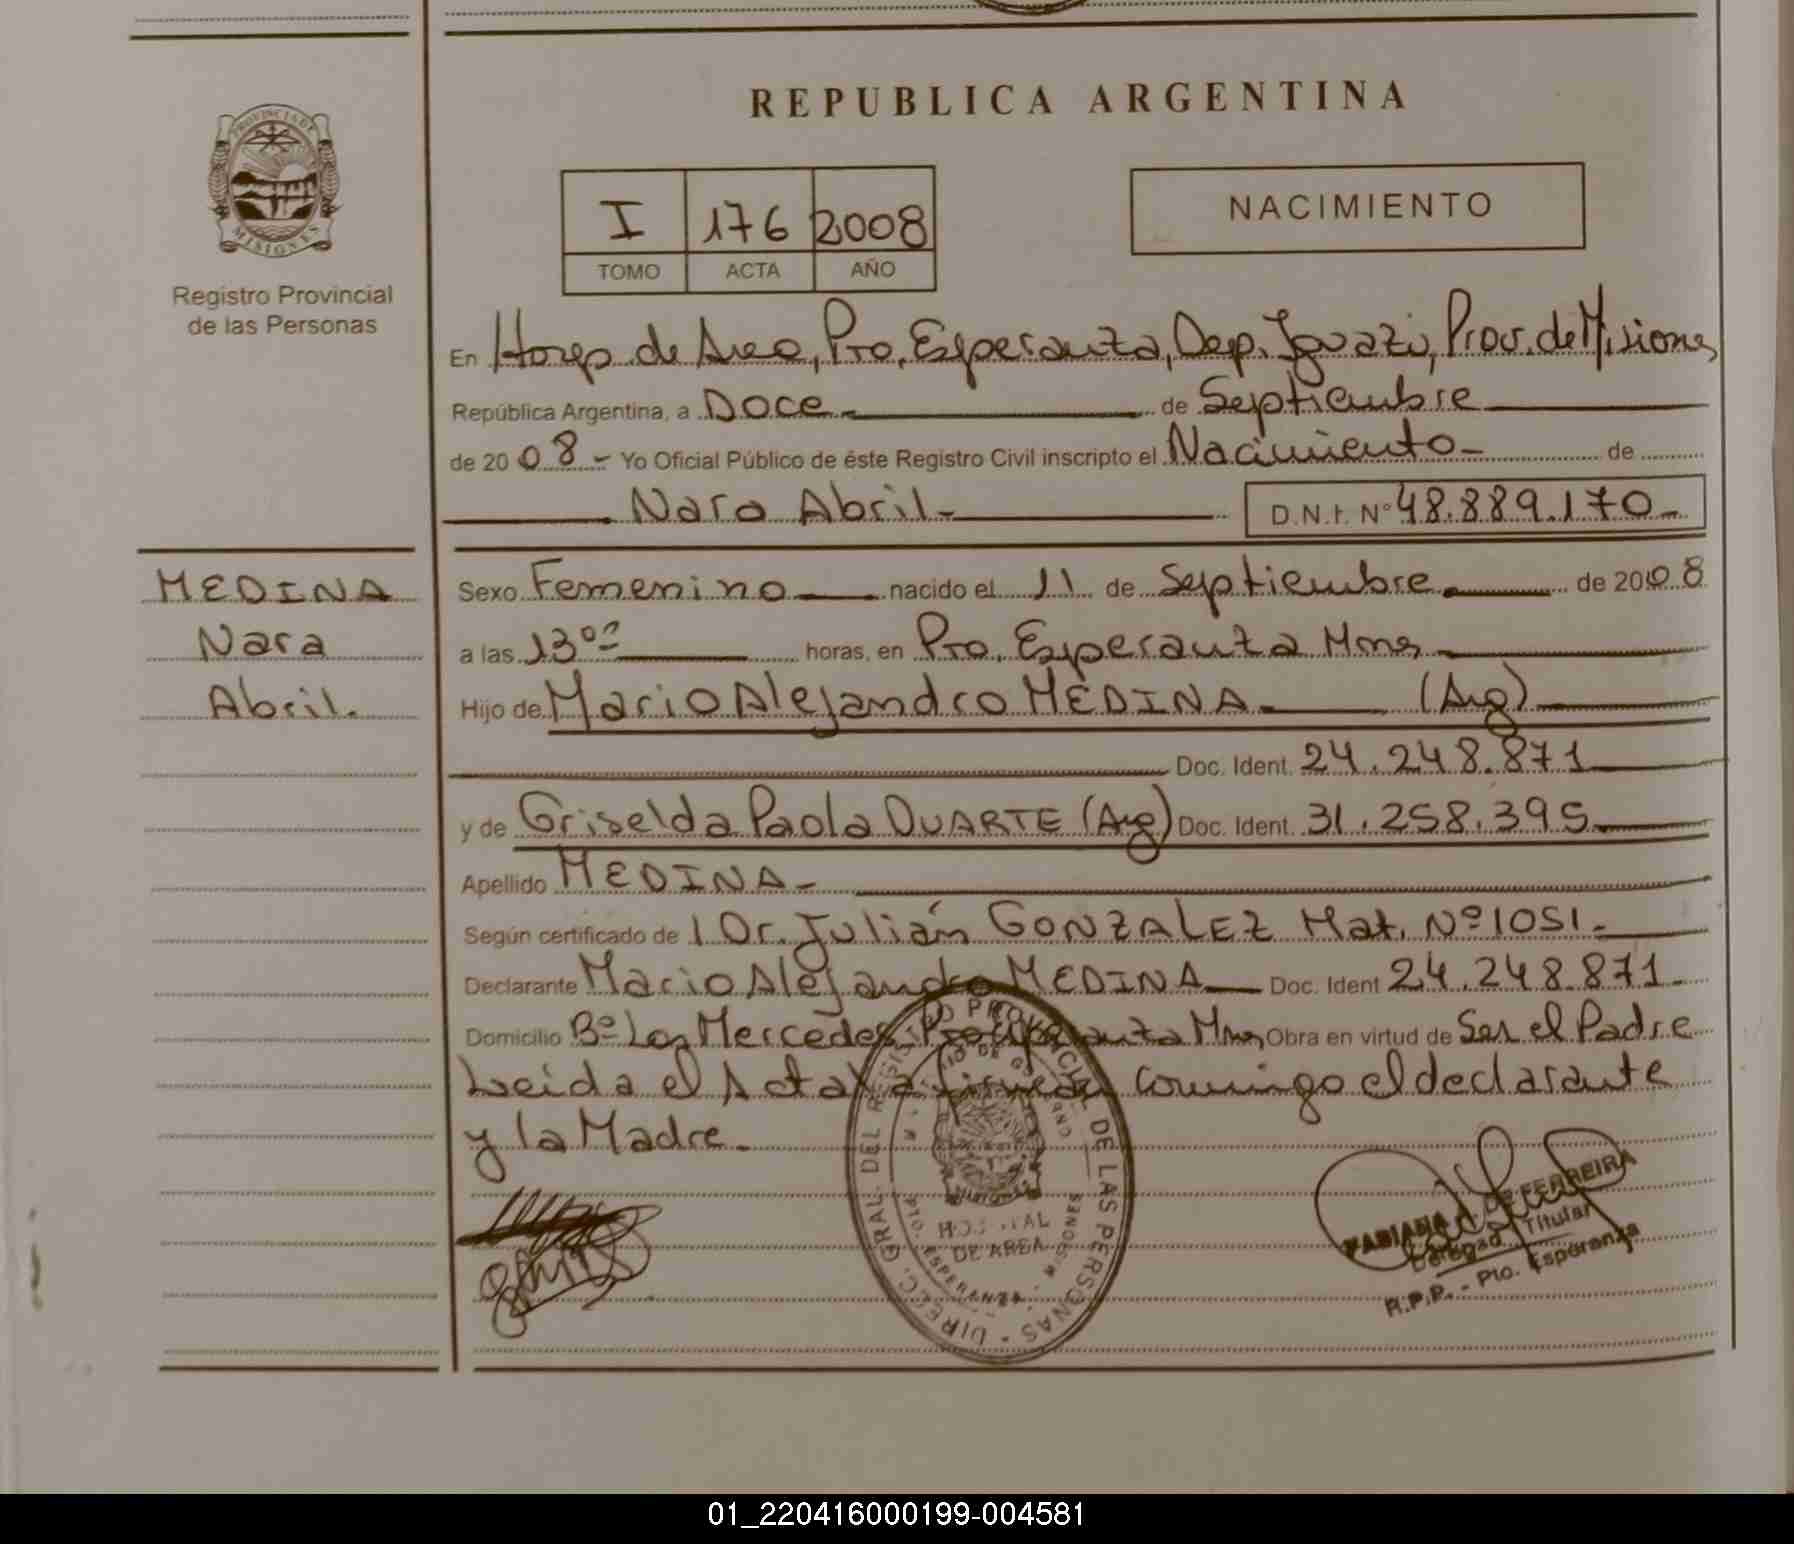 REPUBLICA ARGENTINA
PROVINCIA DE MISIONES
Registro Provincial
de las Personas
I 176 2008
TOMO ACTA AÑO
NACIMIENTO
En Hosp. de Area, Pto. Esperanza, Dep. Iguazú, Prov. de Misiones
República Argentina, a Doce de Septiembre
de 2008 - Yo Oficial Público de éste Registro Civil inscripto el Nacimiento - de
Nara Abril - D.N.I. Nº 48.889.170 -
MEDINA
Nara
Abril.
Sexo Femenino nacido el 11 de Septiembre de 2008
a las 13ºº horas, en Pto. Esperanza Mnes
Hijo de Mario Alejandro MEDINA (Arg)
Doc. Ident. 24.248.871
y de Griselda Paola DUARTE (Arg) Doc. Ident. 31.258.395
Apellido MEDINA -
Según certificado de 1 Dr. Julián GONZALEZ Mat. Nº 1051 -
Declarante Mario Alejandro MEDINA Doc. Ident 24.248.871 -
Domicilio Bº Las Mercedes Pto Esperanza Mnes Obra en virtud de Ser el Padre
Leida el Acta la firman conmigo el declarante
y la Madre -
DIRECC. GRAL. DEL REGISTRO PROVINCIAL DE LAS PERSONAS
HOSPITAL
DE AREA
PTO. ESPERANZA - MISIONES
FABIANA DE FERREIRA
Delegada Titular
R.P.P. - Pto. Esperanza
01_220416000199-004581